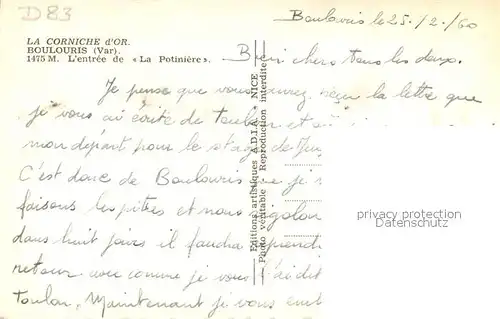 D83
LA CORNICHE d'OR.
BOULOURIS (Var).
1475 M. L'entrée de « La Potinière ».
Boulouris le 25./2./60
Bien chers tous les deux.
Je pense que vous avez reçu la lettre que
je vous ai écrite de Toulon et
mon départ pour le stage de
C'est donc de Boulouris que je
faisons les pitres et nous rigolon
dans huit jours il faudra
retour avec comme je vous l'ai dit
Toulon. Maintenant je vous
Editions artistiques A.D.I.A. - NICE
Photo véritable Reproduction interdite
privacy protection
Datenschutz